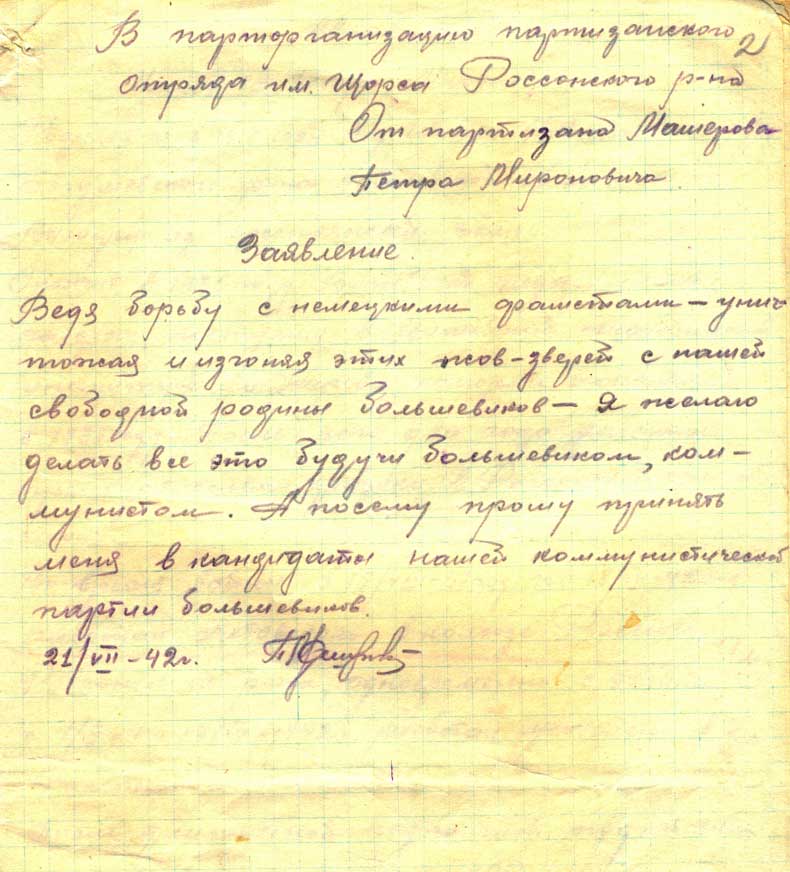 В парторганизацию партизанского
2
отряда им. Щорса Россонского р-на
От партизана Машерова
Петра Мироновича
Заявление.
Ведя борьбу с немецкими фашистами – унич-
тожая и изгоняя этих псов-зверей с нашей
свободной родины большевиков – я желаю
делать все это будучи большевиком, ком-
мунистом. А посему прошу принять
меня в кандидаты нашей коммунистической
партии большевиков.
21/VII – 42г.